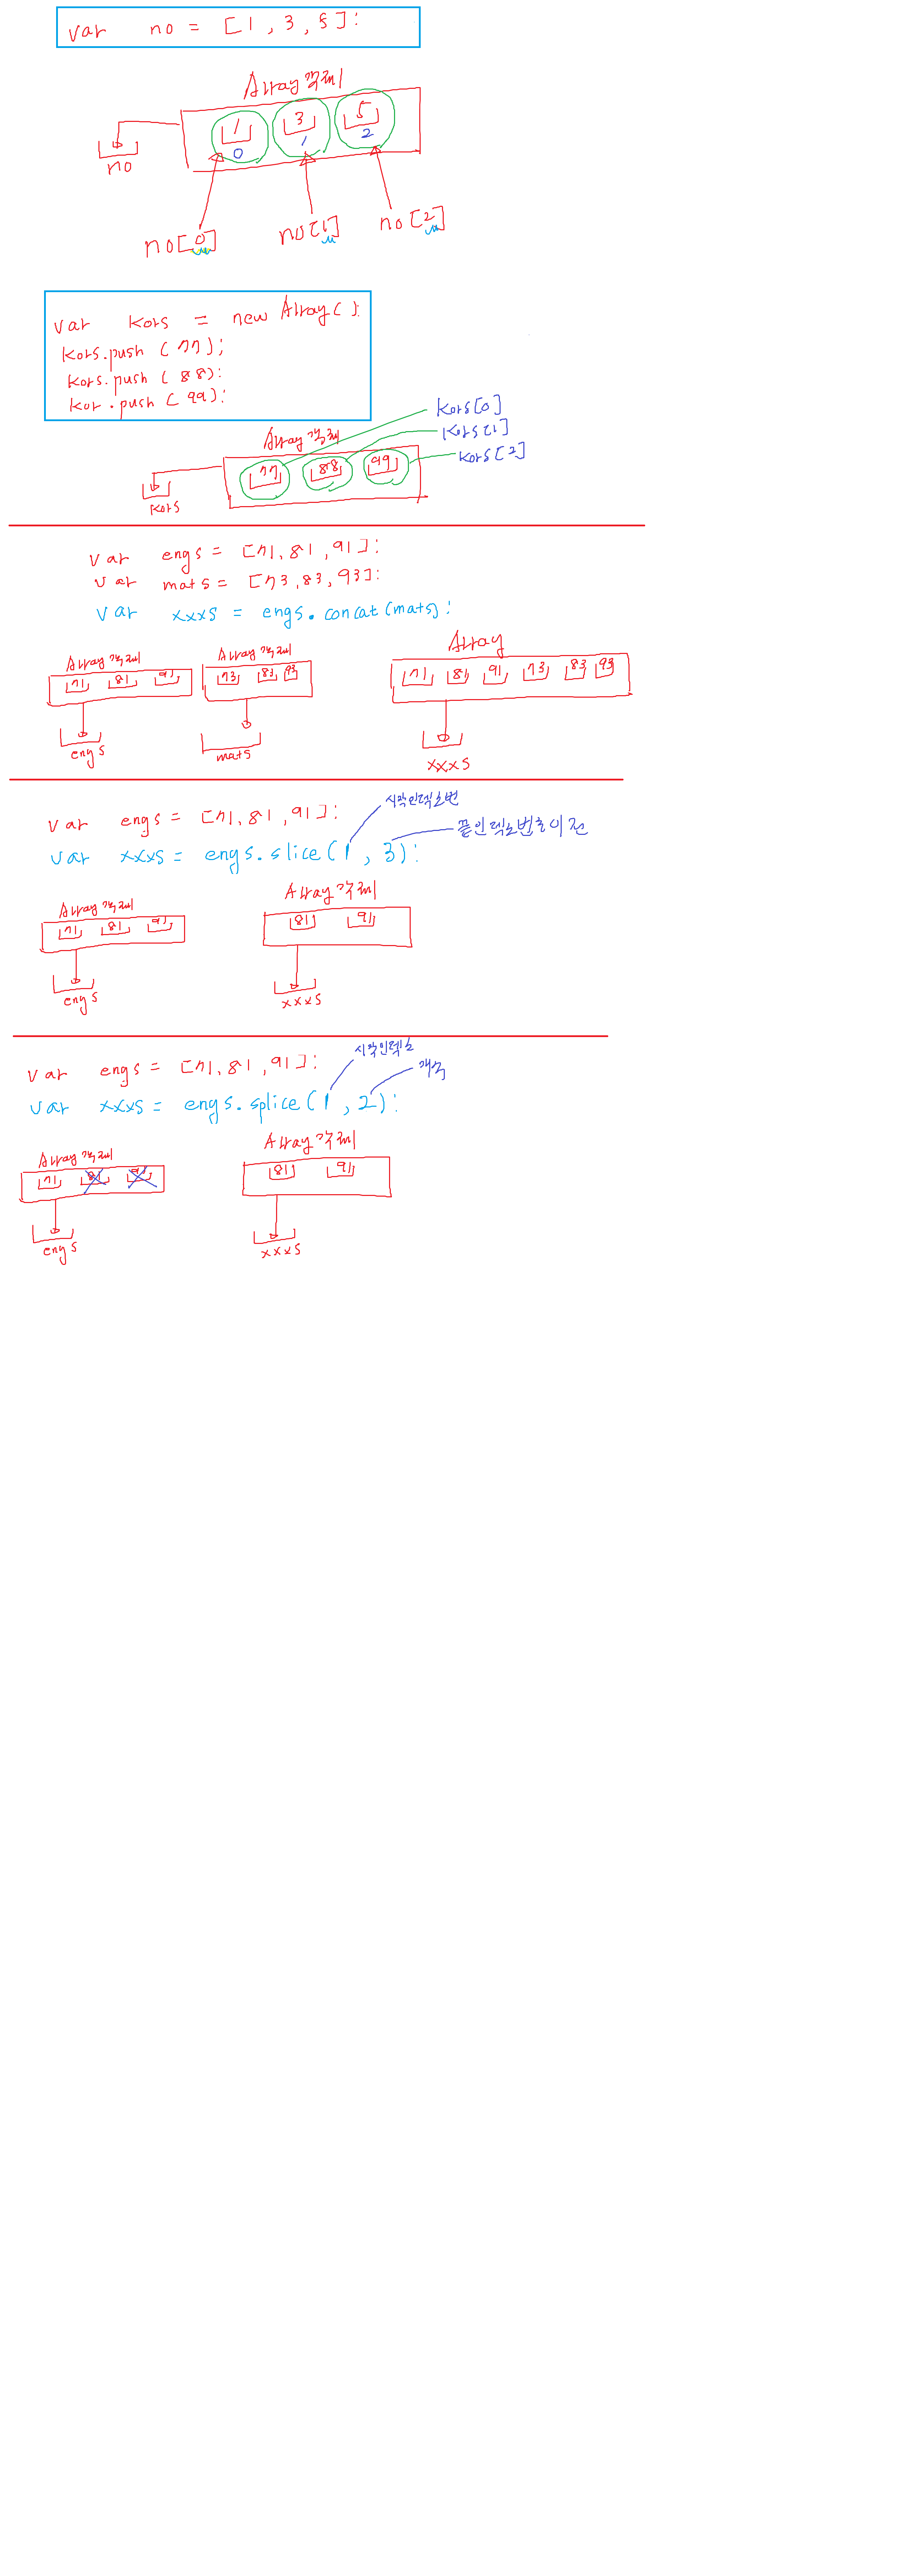 var no = [1, 3, 5];
Array 객체
1 3 5
0 1 2
no
no[0] no[1] no[2]
var kors = new Array();
kors.push(77);
kors.push(88);
kor.push(99);
Array 객체
77 88 99
kors[0]
kors[1]
kors[2]
kors
var engs = [71, 81, 91];
var mats = [73, 83, 93];
var xxxs = engs.concat(mats);
Array 객체
71 81 91
engs
Array 객체
73 83 93
mats
Array
71 81 91 73 83 93
xxxs
시작인덱스번
var engs = [71, 81, 91];
끝인덱스번호이전
var xxxs = engs.slice(1, 3);
Array 객체
71 81 91
engs
Array 객체
81 91
xxxs
시작인덱스
var engs = [71, 81, 91];
개수
var xxxs = engs.splice(1, 2);
Array 객체
71 81 91
engs
Array 객체
81 91
xxxs